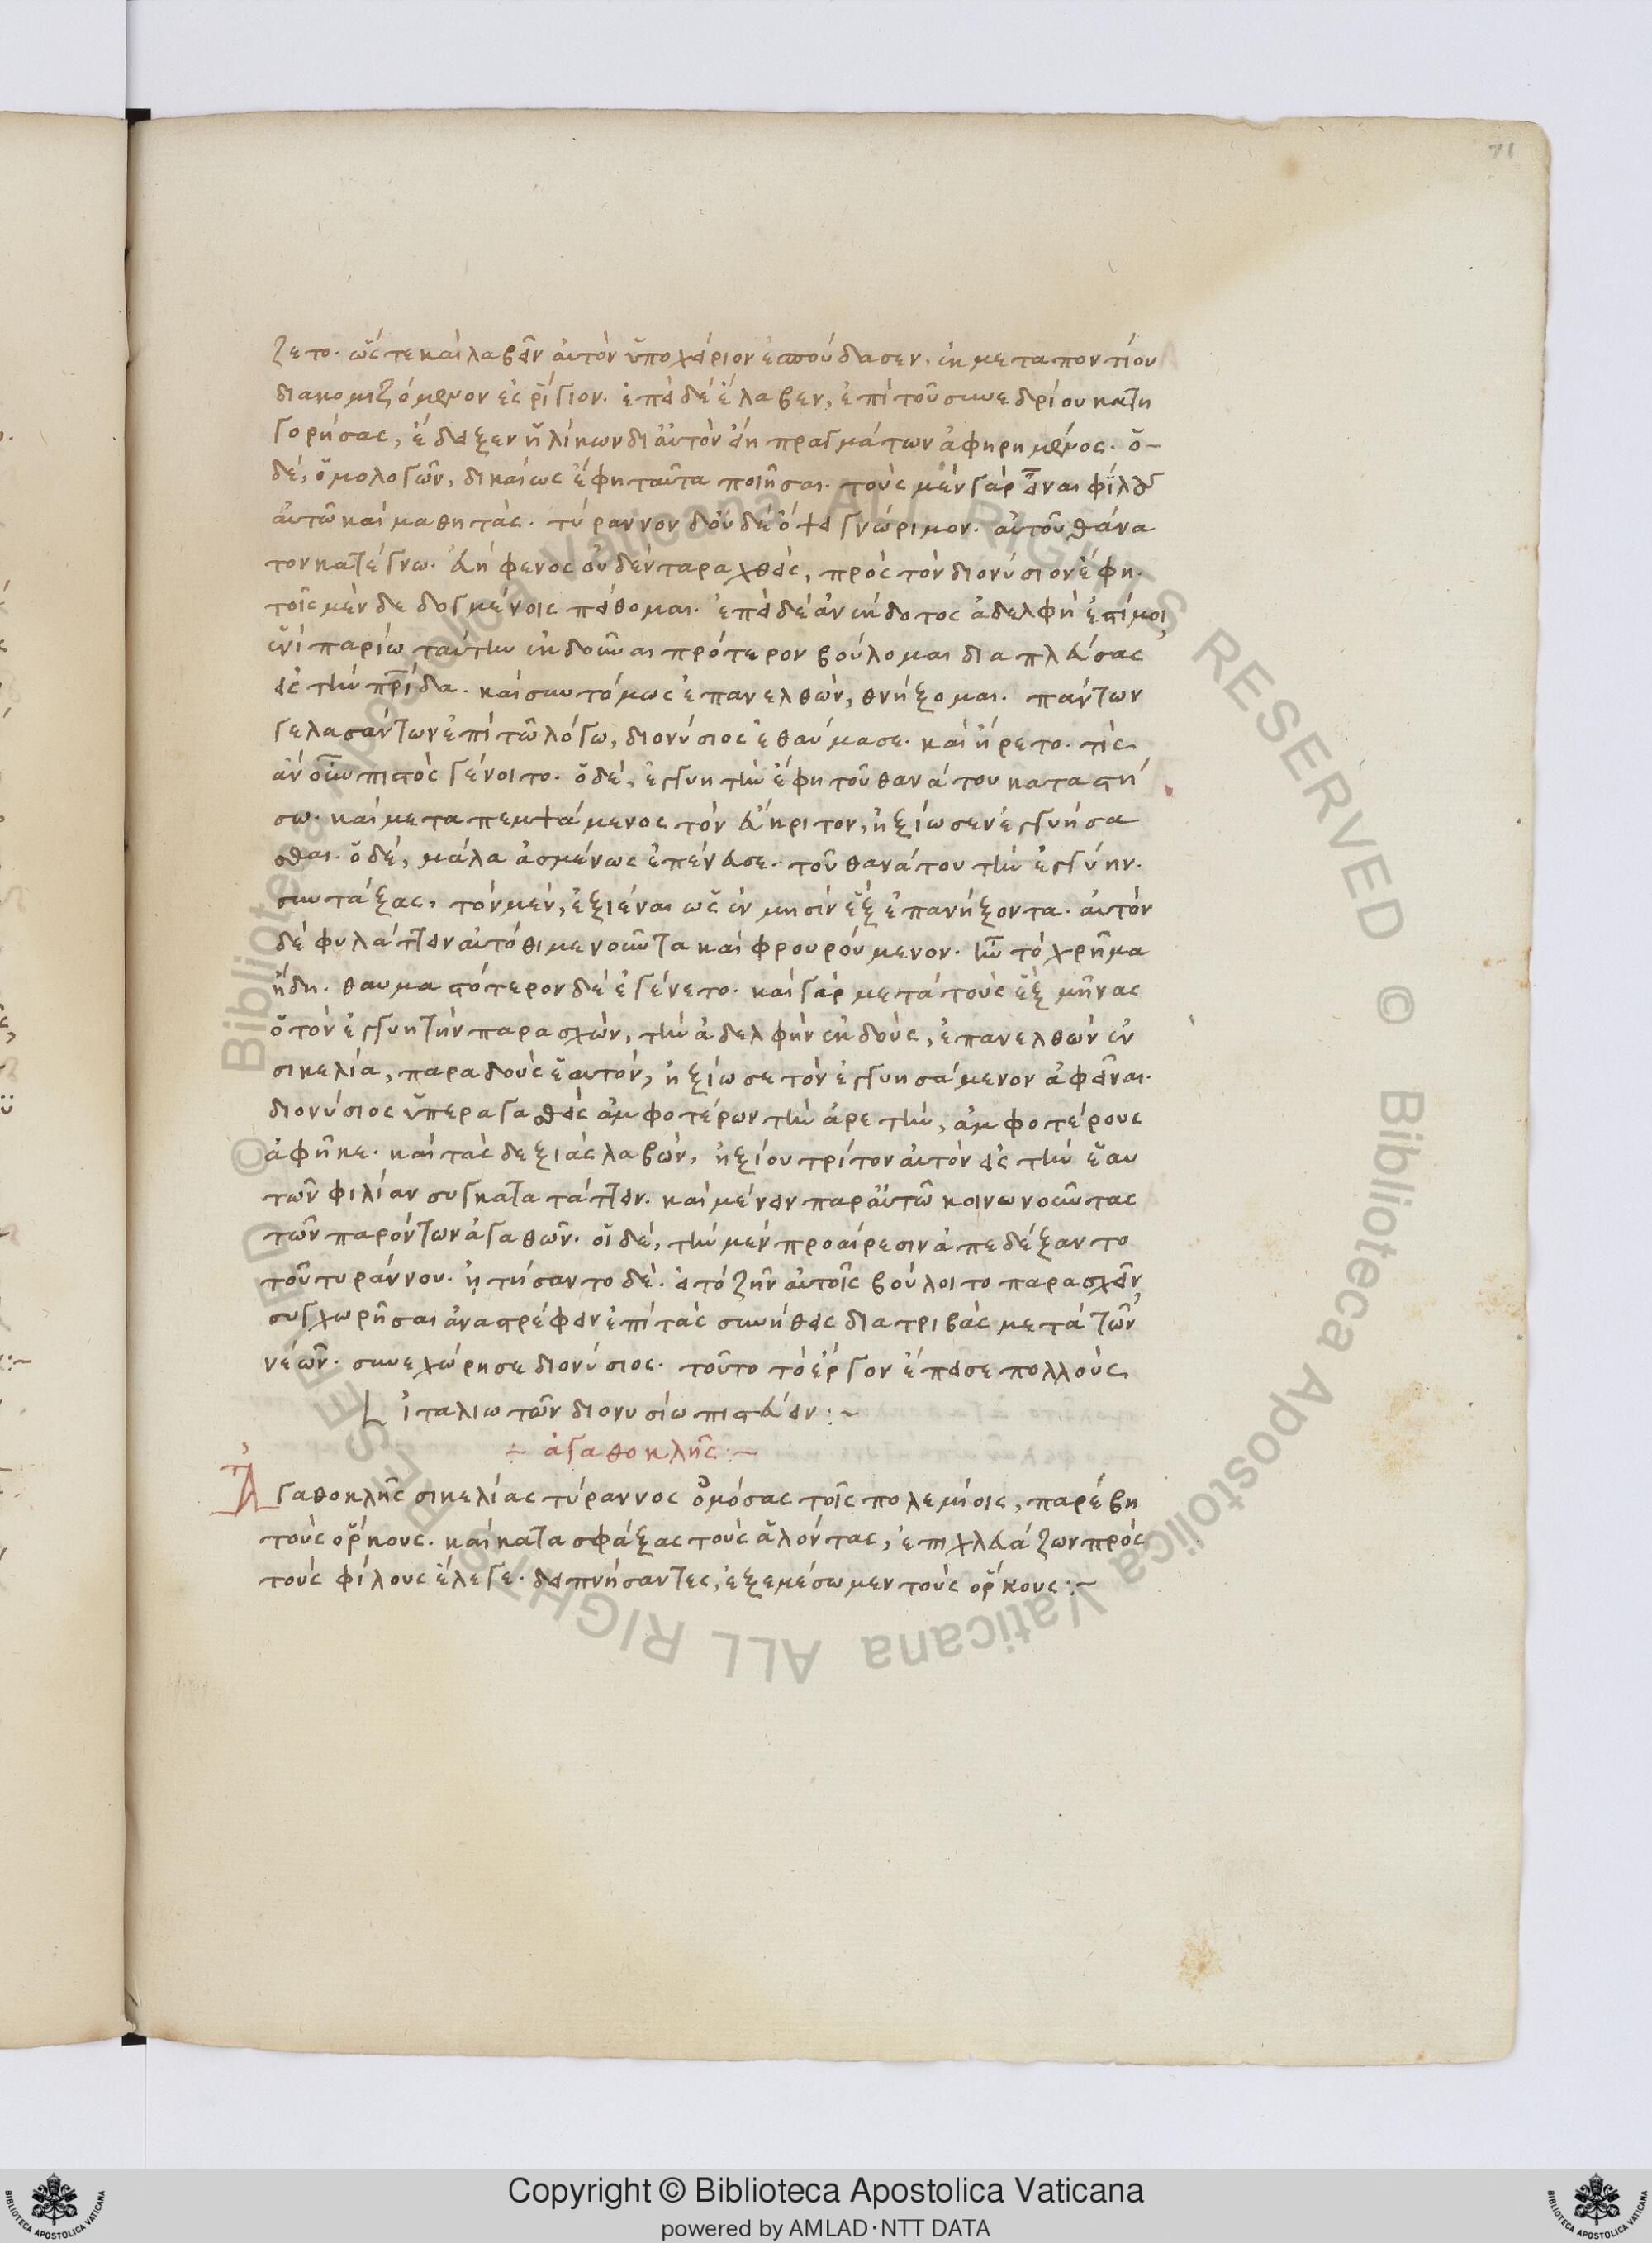 71
ζετο· ὥςτε καὶ λαβεῖν αὐτὸν ὑποχείριον ἐσπούδασεν, ἐκ μεταποντίου
διακομιζόμενον ἐς ῥίγιον· ἐπεὶ δὲ ἔλαβεν, ἐπὶ τοῦ συνεδρίου κατη
γορήσας, ἔδειξεν ἡλίκων δι' αὐτὸν εἴη πραγμάτων ἀφηρημένος· ὁ-
δὲ, ὁμολογῶν, δικαίως ἔφη ταῦτα ποιῆσαι· τοὺς μὲν γὰρ εἶναι φίλους
αὐτῶ καὶ μαθητὰς· τύραννον δ' οὐδὲ ὄψει γνώριμον· αὐτοῦ θάνα
τον κατέγνω· εὔφενος οὐδὲν ταραχθεὶς, πρὸς τὸν διονύσιον ἔφη·
τοῖς μὲν δεδογμένοις πείθομαι· ἐπεὶ δὲ ἀνέκδοτος ἀδελφὴ ἐστί μοι
ἐνὶ παρίω, ταύτην ἐκδοῦναι πρότερον βούλομαι διαπλεύσας
εἰς τὴν πρίδα· καὶ συντόμως ἐπανελθὼν, θνήξομαι· πάντων
γελασάντων ἐπὶ τῶ λόγω, διονύσιος ἐθαύμασε· καὶ ἤρετο· τίς
ἂν οὖν πιστὸς γένοιτο· ὁ δὲ, ἐγγυητὴν ἔφη τοῦ θανάτου καταστή
σω· καὶ μεταπεμψάμενος τὸν εὔκριτον, ἠξίωσεν ἐγγυήσα
σθαι· ὁ δὲ, μάλα ἀσμένως ἐπένευσε· τοῦ θανάτου τὴν ἐγγύην·
συντάξας, τὸν μὲν, ἐξιέναι ὡς ἐν μησὶν ἓξ ἐπανήξοντα· αὐτὸν
δὲ φυλάττειν αὐτόθι μενοῦντα καὶ φρουρούμενον· ἦν τὸ χρῆμα
ἤδη· θαυμαστότερον δὲ ἐγένετο· καὶ γὰρ μετὰ τοὺς ἓξ μῆνας
ὁ τὸν ἐγγυητὴν παρασχὼν, τὴν ἀδελφὴν ἐκδοὺς, ἐπανελθὼν ἐν
σικελία, παραδοὺς ἑαυτὸν, ἠξίωσε τὸν ἐγγυησάμενον ἀφεῖναι·
διονύσιος ὑπεραγασθεὶς ἀμφοτέρων τὴν ἀρετὴν, ἀμφοτέρους
ἀφῆκε· καὶ τὰς δεξιὰς λαβὼν, ἠξίου τρίτον αὐτὸν εἰς τὴν ἑαυ
τῶν φιλίαν συγκατατάττειν· καὶ μένειν παρ' αὐτῶ κοινωνοῦντας
τῶν παρόντων ἀγαθῶν· οἱ δὲ, τὴν μὲν προαίρεσιν ἀπεδέξαντο
τοῦ τυράννου· ᾐτήσαντο δὲ· εἰ τὸ ζῆν αὐτοῖς βούλοιτο παρασχεῖν,
συγχωρῆσαι ἀναστρέφειν ἐπὶ τὰς συνήθεις διατριβὰς μετὰ τῶν
νέων· συνεχώρησε διονύσιος· τοῦτο τὸ ἔργον ἔπεισε πολλοὺς
ἰταλιω τῶν διονυσίω πιστεύειν:~
÷ ἀγαθοκλῆς:~
Ἀγαθοκλῆς σικελίας τύραννος ὀμόσας τοῖς πολεμίοις, παρέβη
τοὺς ὅρκους· καὶ κατασφάξας τοὺς ἁλόντας, ἐπιχλευάζων πρὸς
τοὺς φίλους ἔλεγε· δειπνήσαντες, ἐξεμέσωμεν τοὺς ὅρκους:~
Copyright © Biblioteca Apostolica Vaticana
powered by AMLAD·NTT DATA